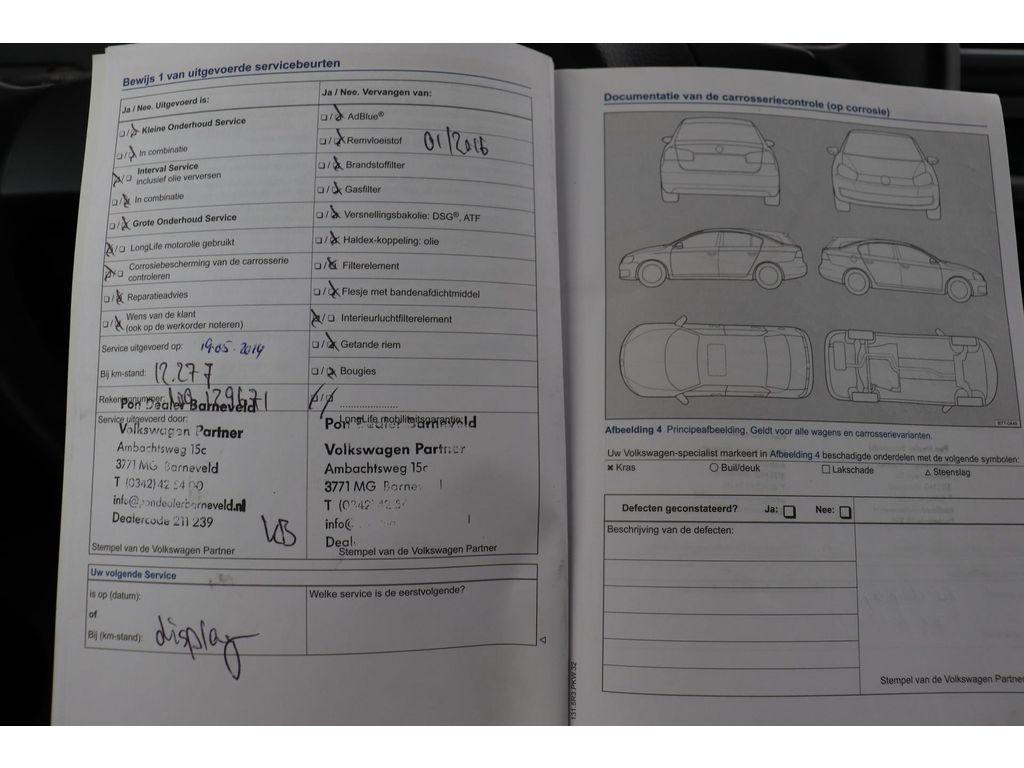 Bewijs 1 van uitgevoerde servicebeurten
Ja / Nee. Uitgevoerd is:
Kleine Onderhoud Service
In combinatie
Interval Service
inclusief olie verversen
In combinatie
Grote Onderhoud Service
LongLife motorolie gebruikt
Corrosiebescherming van de carrosserie
controleren
Reparatieadvies
Wens van de klant
(ook op de werkorder noteren)
Service uitgevoerd op: 19-05-2014
Bij km-stand: 12.277
Rekeningnummer:
Pon Dealer Barneveld
Service uitgevoerd door:
Volkswagen Partner
Ambachtsweg 15c
3771 MG Barneveld
T (0342) 42 54 00
info@pondealerbarneveld.nl
Dealercode 211 239
Stempel van de Volkswagen Partner
Ja / Nee. Vervangen van:
AdBlue®
Remvloeistof 01/2016
Brandstoffilter
Gasfilter
Versnellingsbakolie: DSG®, ATF
Haldex-koppeling: olie
Filterelement
Flesje met bandenafdichtmiddel
Interieurluchtfilterelement
Getande riem
Bougies
LongLife mobiliteitsgarantie:
Pon Dealer Barneveld
Volkswagen Partner
Ambachtsweg 15c
3771 MG Barnev
T (0342) 42 54
info@
Deal
Stempel van de Volkswagen Partner
Uw volgende Service
is op (datum):
of
Bij (km-stand): display
Welke service is de eerstvolgende?
Documentatie van de carrosseriecontrole (op corrosie)
B7T-0449
Afbeelding 4 Principeafbeelding. Geldt voor alle wagens en carrosserievarianten.
Uw Volkswagen-specialist markeert in Afbeelding 4 beschadigde onderdelen met de volgende symbolen:
× Kras ○ Buil/deuk □ Lakschade △ Steenslag
Defecten geconstateerd? Ja: □ Nee: □
Beschrijving van de defecten:
Stempel van de Volkswagen Partner
131.5R3.PKW.32